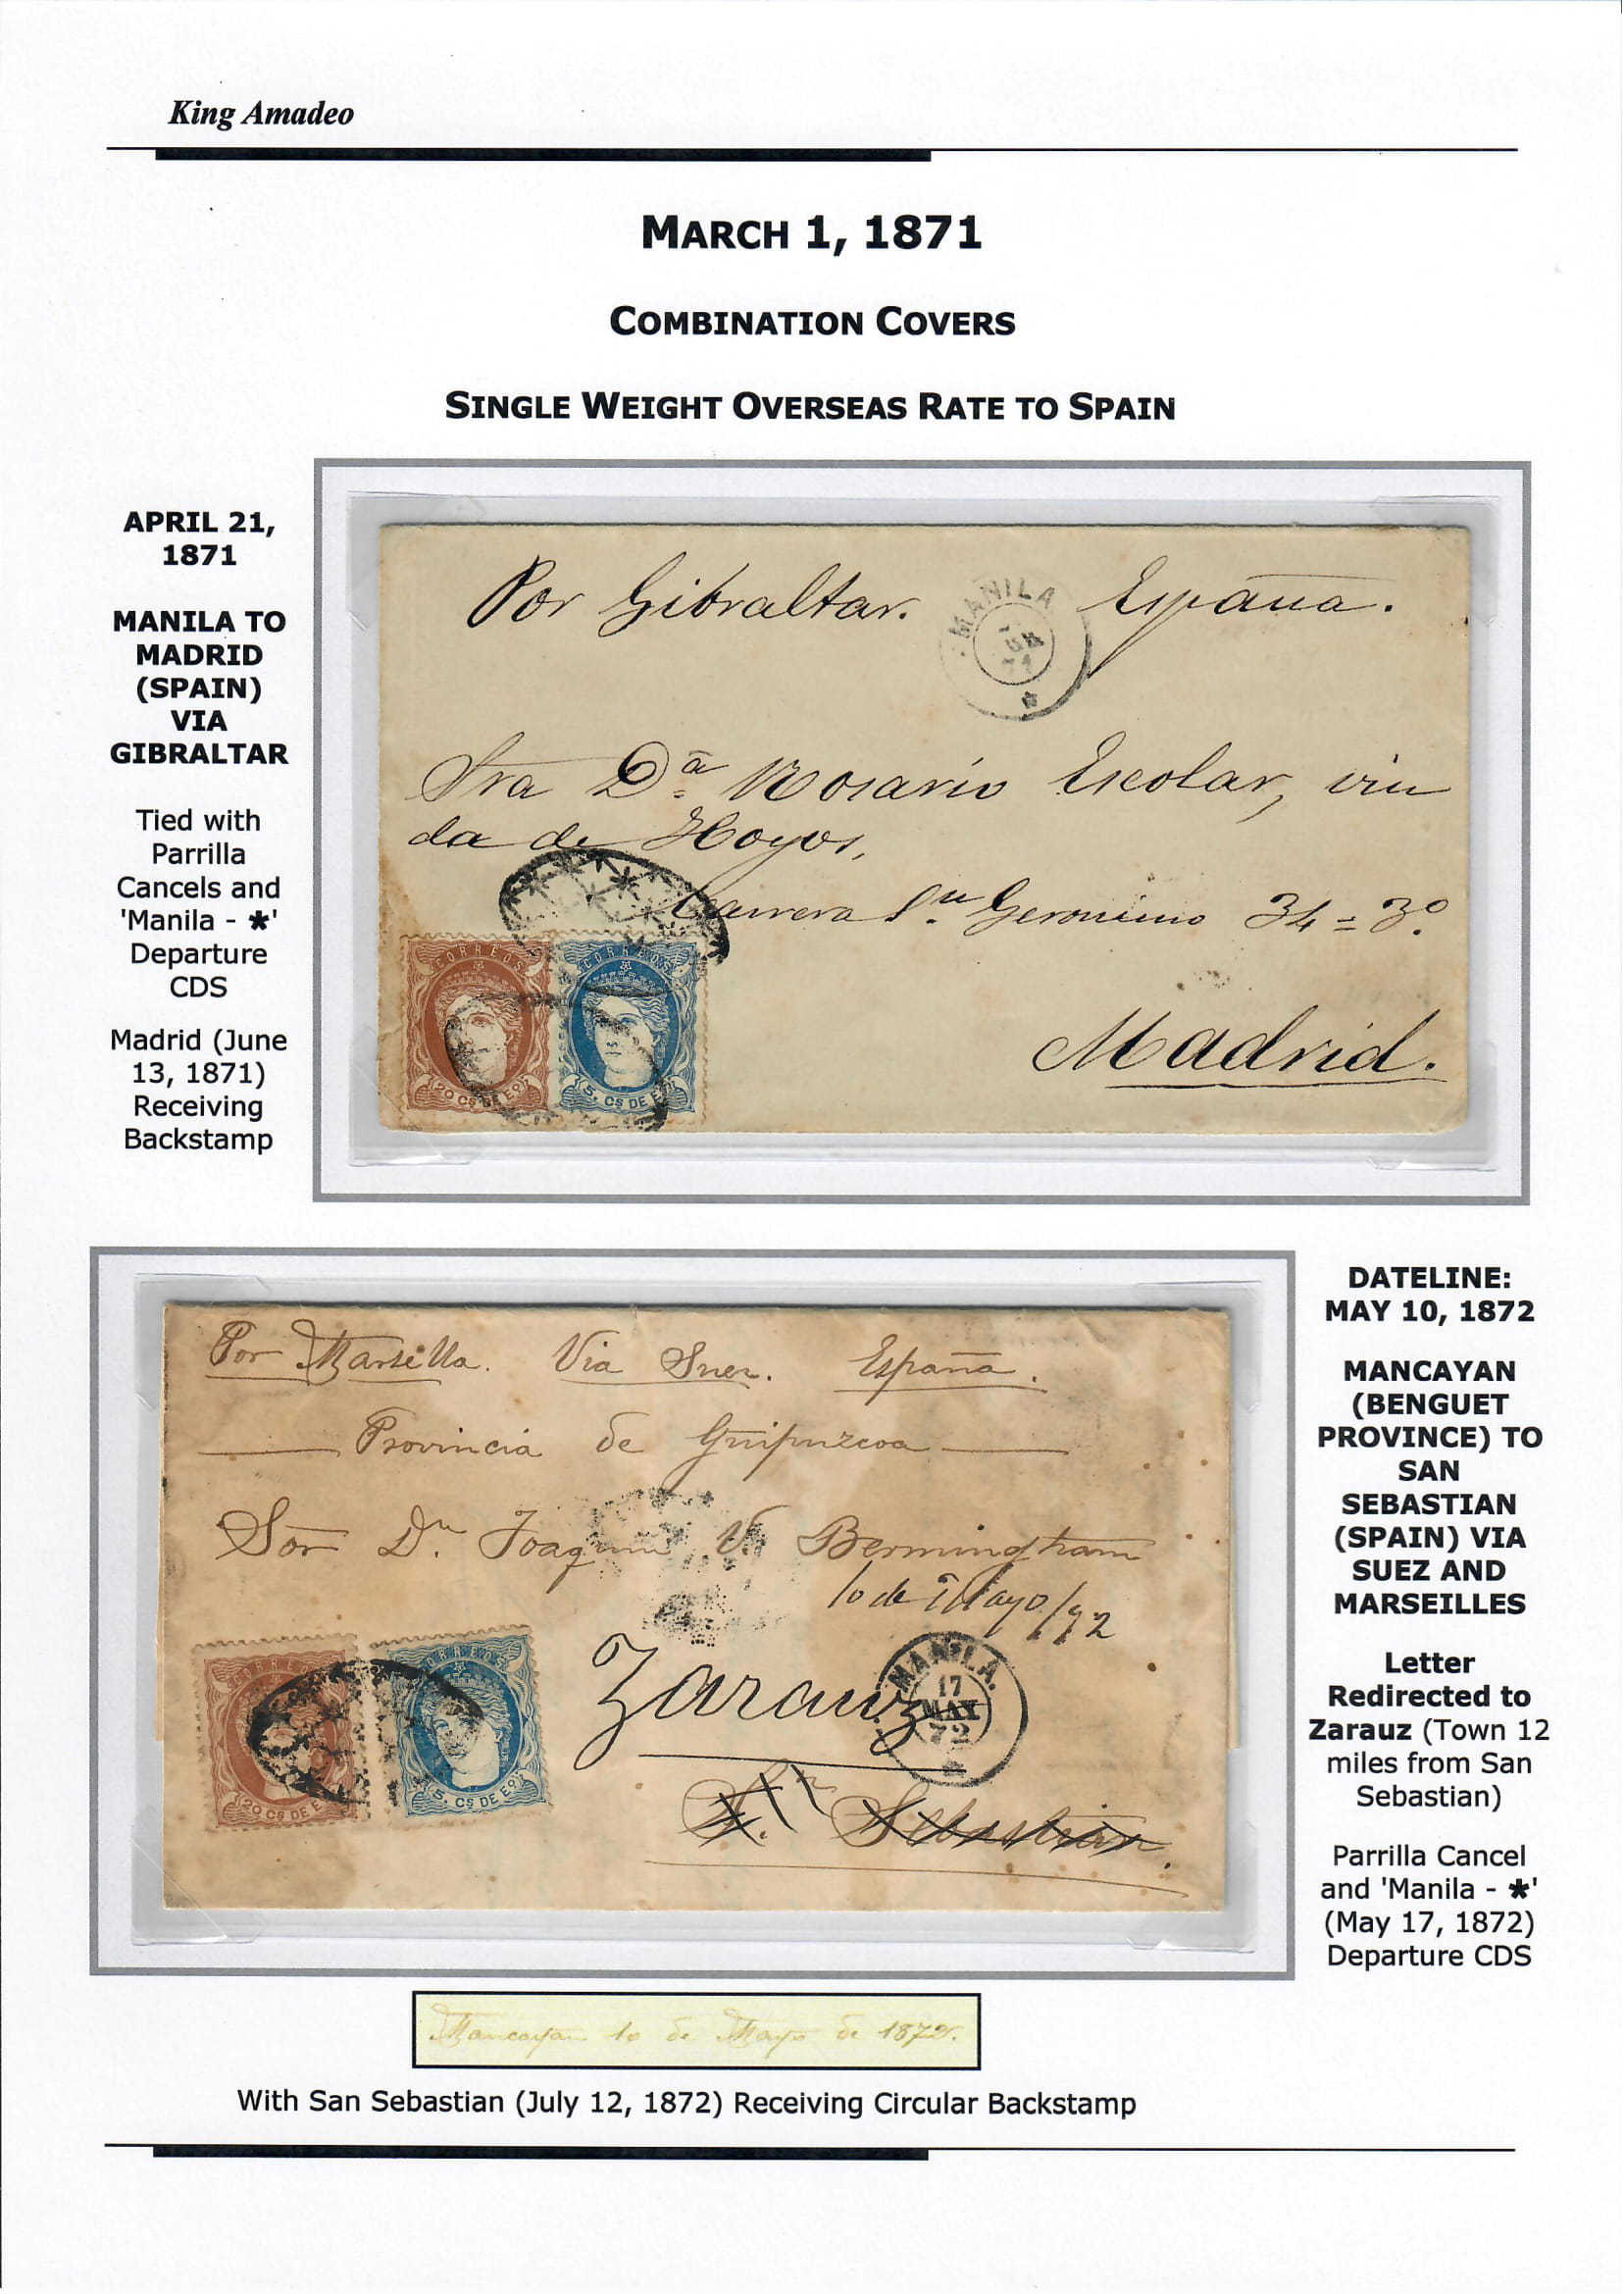 King Amadeo
MARCH 1, 1871
COMBINATION COVERS
SINGLE WEIGHT OVERSEAS RATE TO SPAIN
APRIL 21,
1871
MANILA TO
MADRID
(SPAIN)
VIA
GIBRALTAR
Tied with
Parrilla
Cancels and
'Manila - *'
Departure
CDS
Madrid (June
13, 1871)
Receiving
Backstamp
Por Gibraltar. España.
MANILA
71
Sra Dª Rosario Escolar, viu
da de Hoyos,
Carrera Sn Geronimo 34 = 3º
Madrid.
CORREOS CORREOS
20 Cs DE Eo 5. Cs DE Eo
Por Marsella. Via Suez. España.
Provincia de Guipuzcoa
Sor Dn Joaquin V. Bermingham
10 de Mayo/72
Zarauz
MANILA.
17
MAY
72
Sn Sebastian.
CORREOS CORREOS
20 Cs DE E 5. Cs DE Eo
DATELINE:
MAY 10, 1872
MANCAYAN
(BENGUET
PROVINCE) TO
SAN
SEBASTIAN
(SPAIN) VIA
SUEZ AND
MARSEILLES
Letter
Redirected to
Zarauz (Town 12
miles from San
Sebastian)
Parrilla Cancel
and 'Manila - *'
(May 17, 1872)
Departure CDS
Mancayan 10 de Mayo de 1872.
With San Sebastian (July 12, 1872) Receiving Circular Backstamp